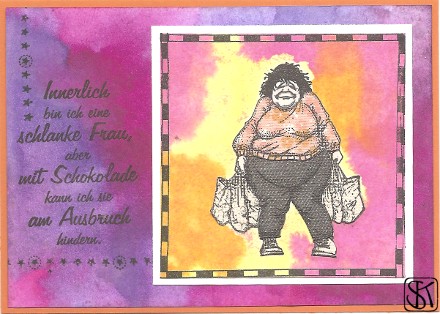 Innerlich
bin ich eine
schlanke Frau,
aber
mit Schokolade
kann ich sie
am Ausbruch
hindern.
SK